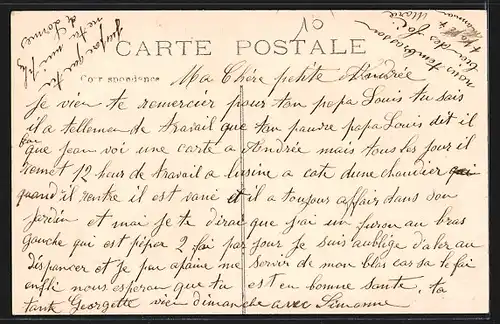 10
CARTE POSTALE
Correspondance
Ma Chère petite Andrée
Je vien te remercier pour ton papa Louis tu sais
il a telleman de travail que ton pauvre papa Louis dit il
fau que jean voi une carte a Andrée mais tous les jour il
remet 12 heur de travail a lusine a cote dune chaudier
quand il rentre il est vané et il a toujour affair dans son
jardin et mai je te dirai que j'ai un furon au bras
gauche qui est pépar 2 foi par jour je suis aubligé d'aler au
dispancer et je peu apaine me servir de mon blas car sa te fai
enfin nous esperon que tu est en bonne santé. ta
tante Georgette vien dimanche avec Simonne
nous tembrasson
bien des foi
Marie